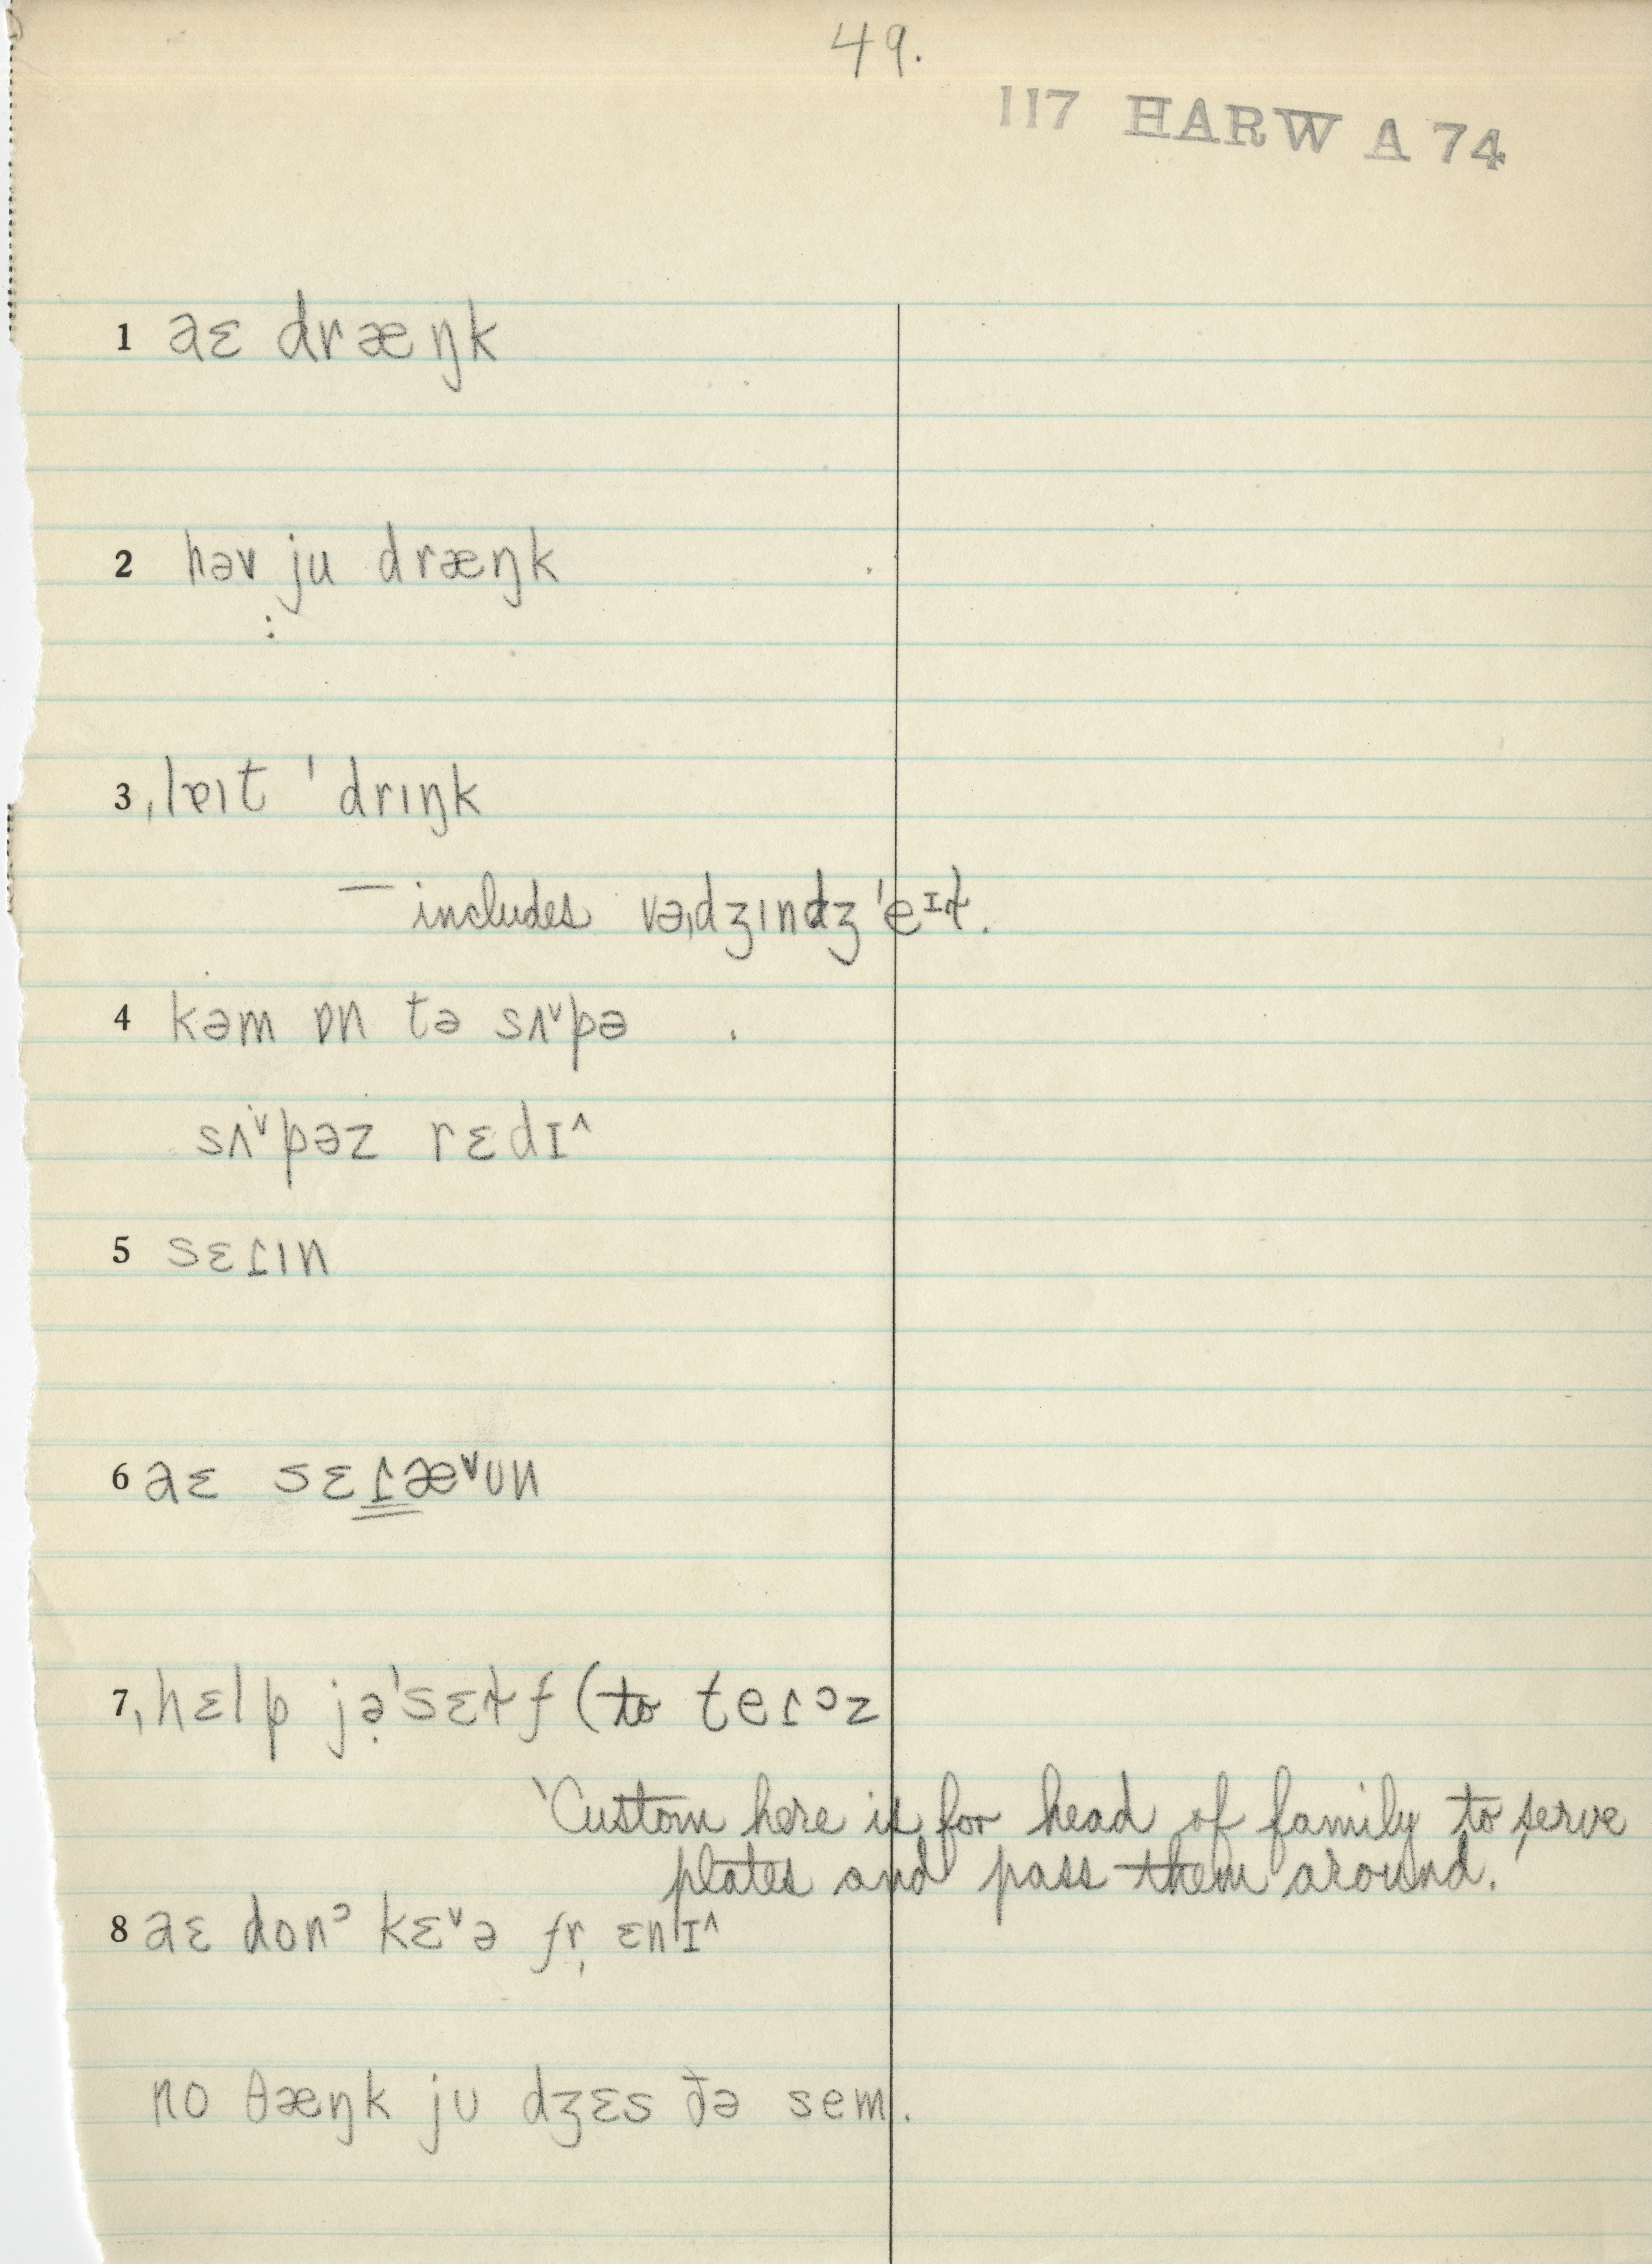 49.
117 HARW A 74
1 aɛ dræŋk
2 həv ju dræŋk
3 ˌlɐɪt ˈdrɪŋk
— includes vəˌdʒɪndʒˈeᶦɫ.
4 kəm ɒn tə sʌ˅pə
sʌ˅pəz rɛdɪ^
5 sɛɾɪn
6 aɛ sɛɾæ˅ʊn
7 ˌhɛlp jə̣ˈsɛɫf (to teɾᵓz
'Custom here is for head of family to serve
plates and pass them around.'
8 aɛ donᵓ kɛ˅ə fr̩ ɛnɪ^
no θæŋk jʊ dʒɛs ðə sem.